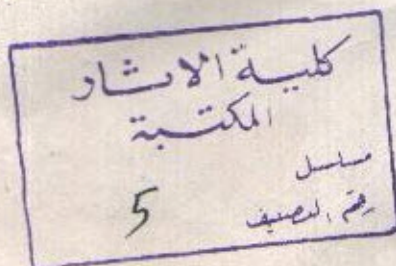 كلية الاثار
المكتبة
مسلسل
رقم التصنيف 5